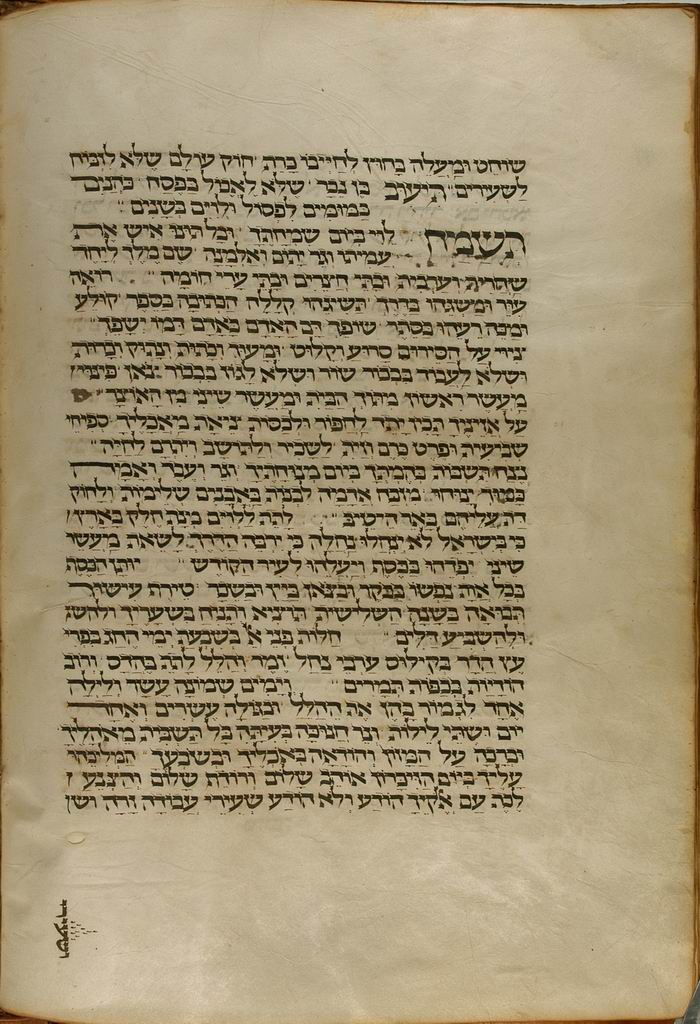 שוחט ומעלה בחוץ לחייבו כרת חוק עולם שלא לזבוח
לשעירים תיעוב בן נכר שלא לאכול בפסח כהנים
במומים לפסול ולוים בשנים
תשמח לוי ביום שמחתך וכל תונו איש את
עמיתו וגר יתום ואלמנה שם מלך ליחד
שחרית וערבית ובתי חצרים ובתי ערי חומה רואה
עור ומשגהו בדרך תשיגהו קללה הכתובה בספר קולע
ומכה רעהו בסתר שופך דם האדם באדם דמו ישפך
ציווי על הסירוס סרוע וקלוט ומעוך וכתות ונתוק וכרות
ושלא לעבוד בבכור שור ושלא לגוז בבכור צאן
מעשר ראשון מתוך הבית ומעשר שיני מן האוצר
על אזיניך תכין יתד לחפור ולכסות ציאת מאכליך ספיחי
שביעית ופרט כרם וזית לשכיר ולתושב ויתרם לחיה
נצח תשבות בהמתך ביום מנוחתך וגר ועבד ואמה
כמוך ינוחו מזבח אדמה לבנות באבנים שלימות ולחוק
דת עליהם באר היטיב לתת ללוים מנה חלק בארץ
כי בישראל לא ינחלו נחלה כי ירבה הדרך לשאת מעשר
שיני יפדהו בכסף ויעלהו לעיר הקודש ונתן הכסף
בכל אות נפשו בבקר ובצאן ביין ובשכר טירת עישור
תבואה בשנה השלישית תוציא ותניח בשעריך ולהשג
ולהשביע דלים חלות פני א בשבעת ימי החג בפרי
עץ הדר בקילוס ערבי נחל זמר והלל לתת בהדס ורוב
הודיות בכפות תמרים וימים שמונה עשר ולילה
אחד לגמור בהן את ההלל ובגולה עשרים ואחד
יום ושתי לילות ונר חנוכה בעיתה בל תשבית מאהליך
וברכה על המזון והודאה באכליך ובשבעך המליכהו
עליך ביום הזיכרון אוהב שלום ורודף שלום והצנע
לכת עם אקיך הודע ולא הודע שעירי עבודה זרה ושן